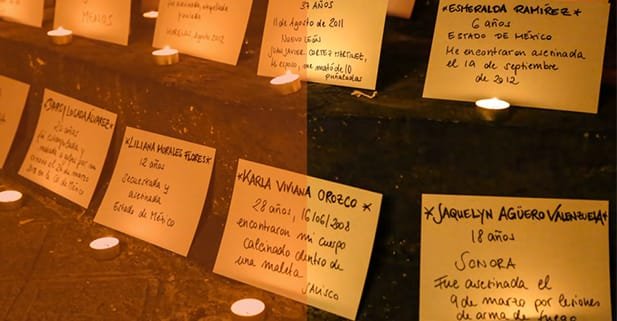 MENOS
MORELOS, Agosto 2002
37 años
11 de Agosto de 2011
NUEVO LEÓN
JUAN JAVIER CORTEZ MARTINEZ,
mi esposo, me mató de 10
puñaladas
*ESMERALDA RAMÍREZ*
6 años
ESTADO DE MÉXICO
Me encontraron asesinada
el 19 de septiembre
de 2012
LOZADA ÁLVAREZ*
años
*LILIANA MORALES FLORES*
12 años
Secuestrada y
asesinada
Estado de México
*KARLA VIVIANA OROZCO*
28 años, 16/06/2008
encontraron mi cuerpo
calcinado dentro de
una maleta
JALISCO
*JAQUELYN AGÜERO VALENZUELA*
18 años
SONORA
Fue asesinada el
9 de marzo por lesiones
de arma de fuego